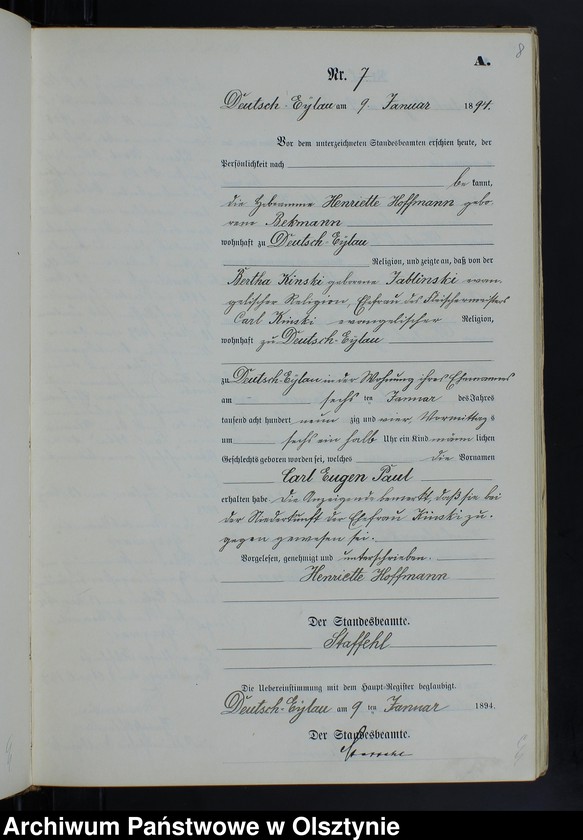 8
A.
Nr. 7
Deutsch-Eylau am 9. Januar 1894.
Vor dem unterzeichneten Standesbeamten erschien heute, der
Persönlichkeit nach
be kannt,
die Hebeamme Henriette Hoffmann gebo-
rene Bekmann
wohnhaft zu Deutsch-Eylau
Religion, und zeigte an, daß von der
Bertha Kinski geborene Jablinski evan-
gelischer Religion, Ehefrau des Fleischermeisters
Carl Kinski evangelischer Religion,
wohnhaft zu Deutsch-Eylau
zu Deutsch-Eylau in der Wohnung ihres Ehemannes
am sechs ten Januar des Jahres
tausend acht hundert neun zig und vier, Vormittags
um sechs ein halb Uhr ein Kind männ lichen
Geschlechts geboren worden sei, welches die Vornamen
Carl Eugen Paul
erhalten habe. Die Anzeigende bemerkt, daß sie bei
der Niederkunft der Ehefrau Kinski zu-
gegen gewesen sei.
Vorgelesen, genehmigt und unterschrieben.
Henriette Hoffmann
Der Standesbeamte.
Staffehl
Die Uebereinstimmung mit dem Haupt-Register beglaubigt.
Deutsch-Eylau am 9 ten Januar 1894.
Der Standesbeamte.
Archiwum Państwowe w Olsztynie